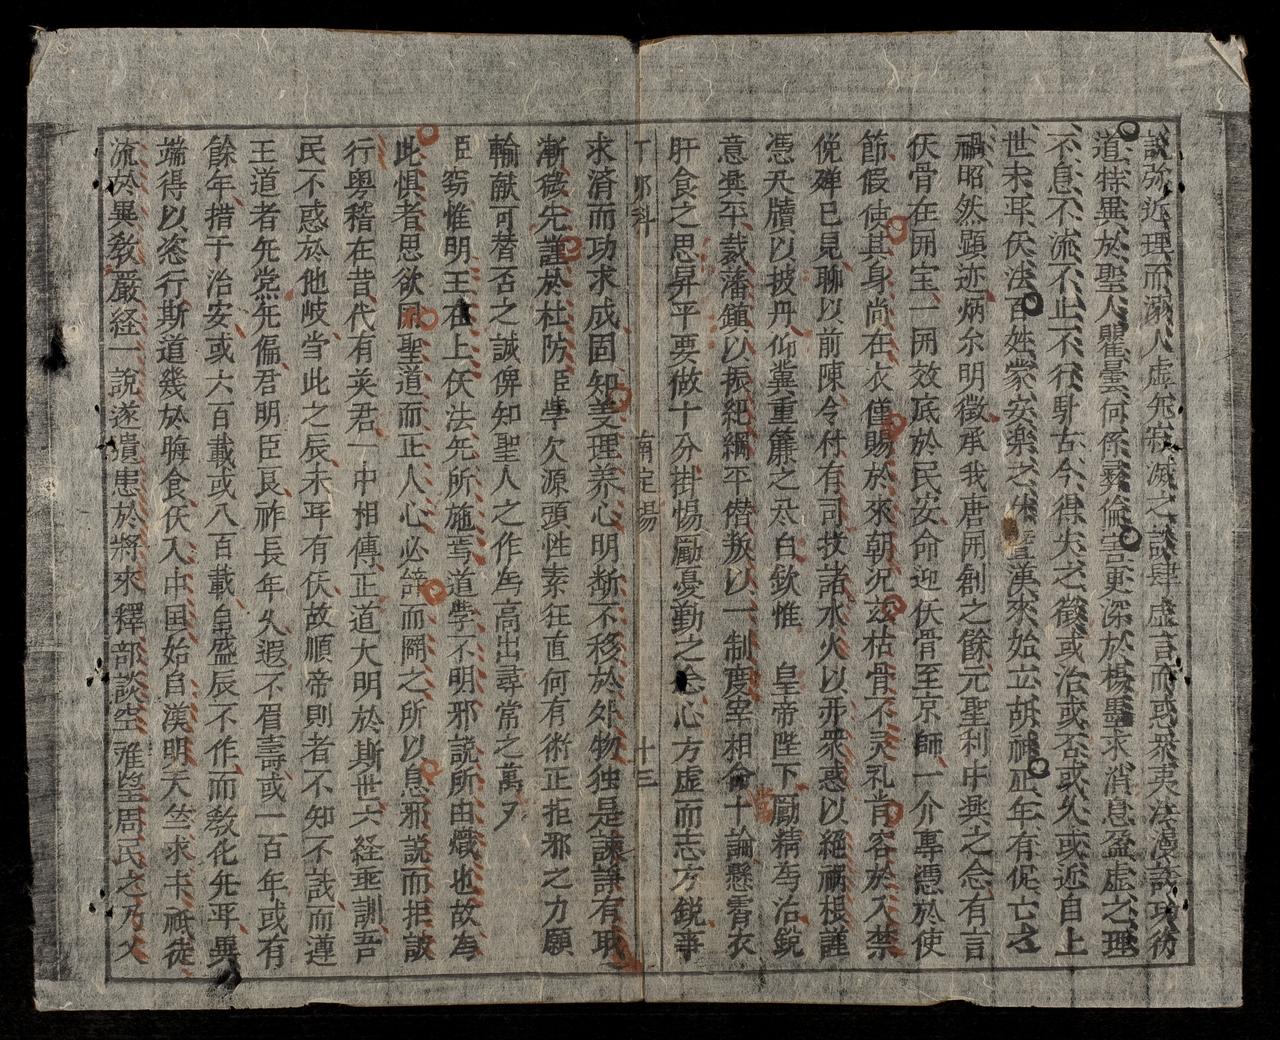 說弥近理而溺人虛无寂滅之談肆虛言而惑衆夷法漢談功彷
道特異於聖人瞿曇何係彛倫害更深於楊墨求消息盈虛之理
不息不流不止不行馱古今得失之徵或治或否或久或近自上
世未耳仸法百姓蒙安楽之休曁漢來始立胡神正年有促亡之
禍昭然顕迹炳尔明徵承我唐開創之餘元聖利中興之念有言
仸骨在囲宝一囲效底於民安命迎仸骨至京師一介專憑於使
節假使其身尚在衣僅賜於來朝况兹枯骨不灵礼肯容於入禁
俛殫已見聊以前陳令付有司投諸水火以开衆惑以絕禍根謹
憑天牘以披丹仰冀重簾之太白欽惟 皇帝陛下勵精为治鋭
意兴平裁藩鎮以振紀綱平僭叛以一制度宰相命十論懸霄衣
肝食之思昇平要做十分掛惕勵憂勤之念心方虛而志方鋭事
十三
求済而功求成固知姜理养心明断不移於外物独是諫諍有耿
漸穢先謹於杜防臣學欠源頭性素狂直何有術正拒邪之力願
輸献可替否之誠俾知聖人之作为高出尋常之萬又
臣窃惟明王在上仸法无所施焉道學不明邪説所由熾也故为
此惧者思欲囲聖道而正人心必辞而闢之所以息邪説而拒詖
行粤稽在昔代有英君一中相傳正道大明於斯世六経垂訓吾
民不惑於他岐当此之辰未耳有仸故順帝則者不知不識而遵
王道者无党无偏君明臣良祚長年久遐不眉壽或一百年或有
餘年措于治安或六百載或八百載皇盛辰不作而敎化无耳異
端得以恣行斯道幾於晦食仸入中国始自漢明天竺求卡祇徒
流於異敎嚴経一說遂遺患於將來釋部談空雅望周民之乃火